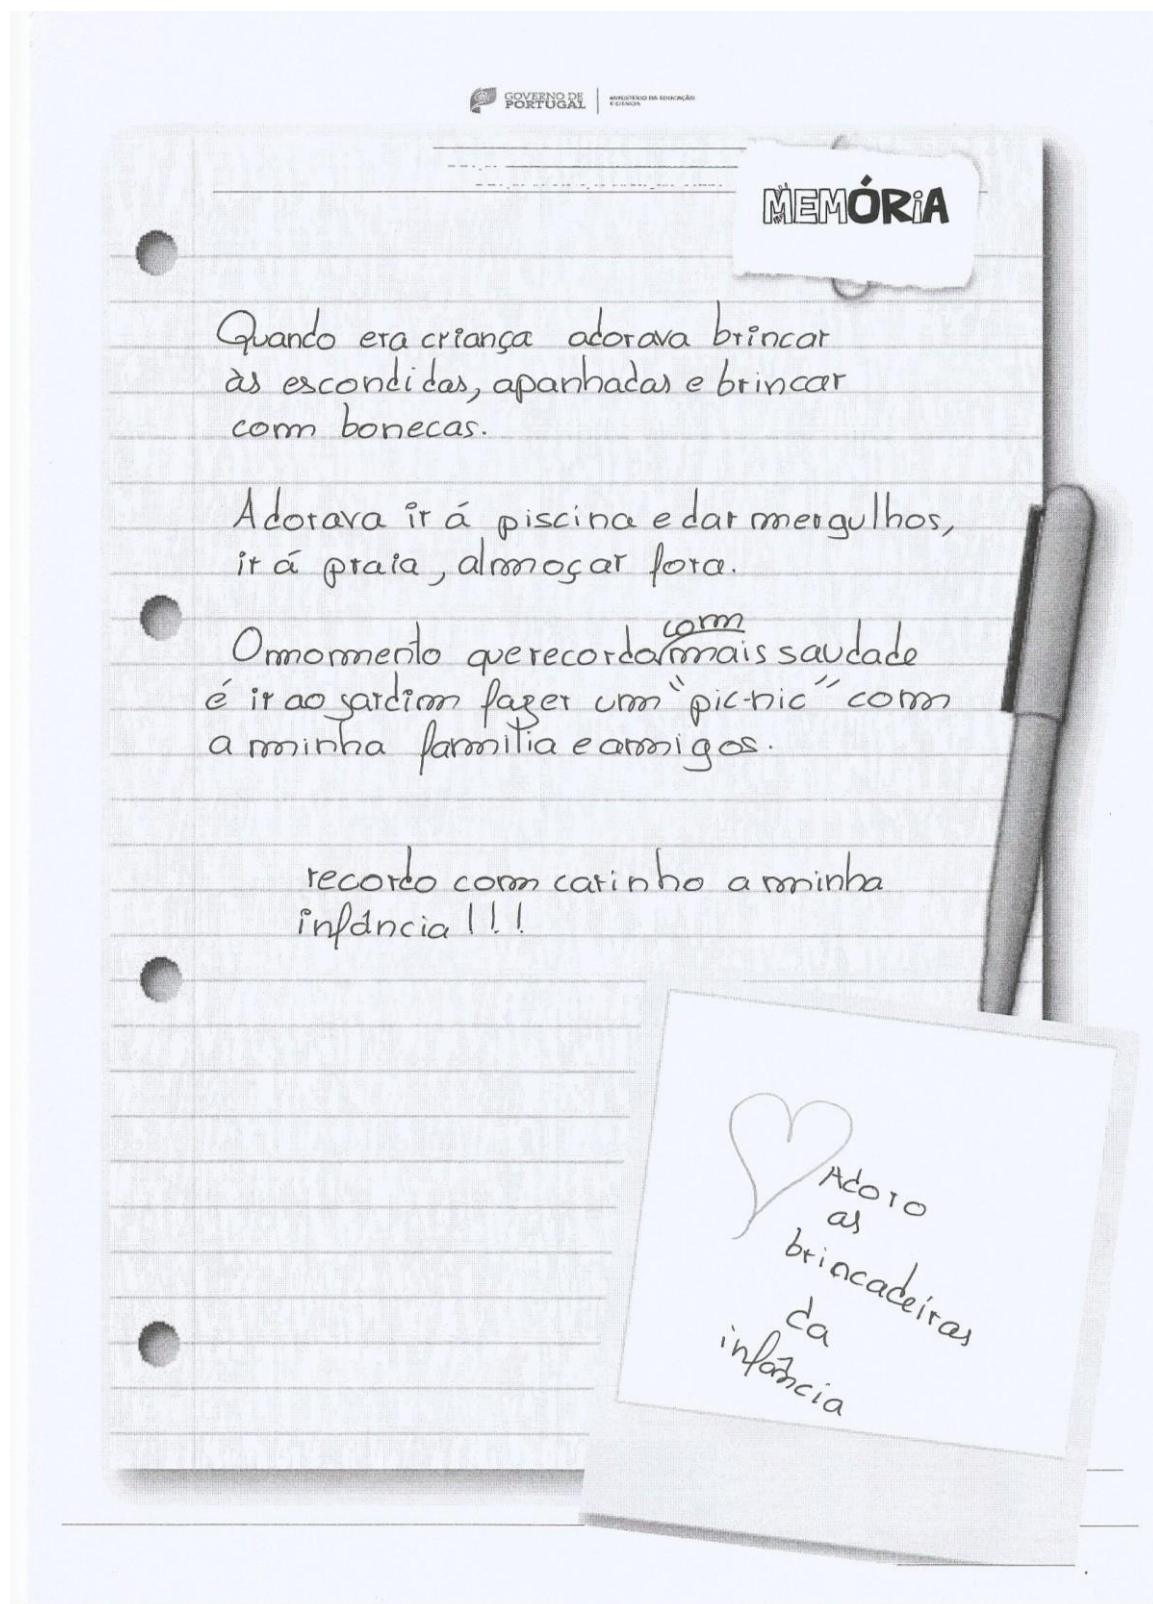 GOVERNO DE
PORTUGAL
MINISTÉRIO DA EDUCAÇÃO
E CIÊNCIA
MEMÓRiA
Quando era criança adorava brincar
às escondidas, apanhadas e brincar
com bonecas.
Adorava ir á piscina e dar mergulhos,
ir á praia, almoçar fora.
com
O momento que recordo mais saudade
é ir ao jardim fazer um "pic-nic" com
a minha família e amigos.
recordo com carinho a minha
infância !!!
Adoro
as
brincadeiras
da
infância